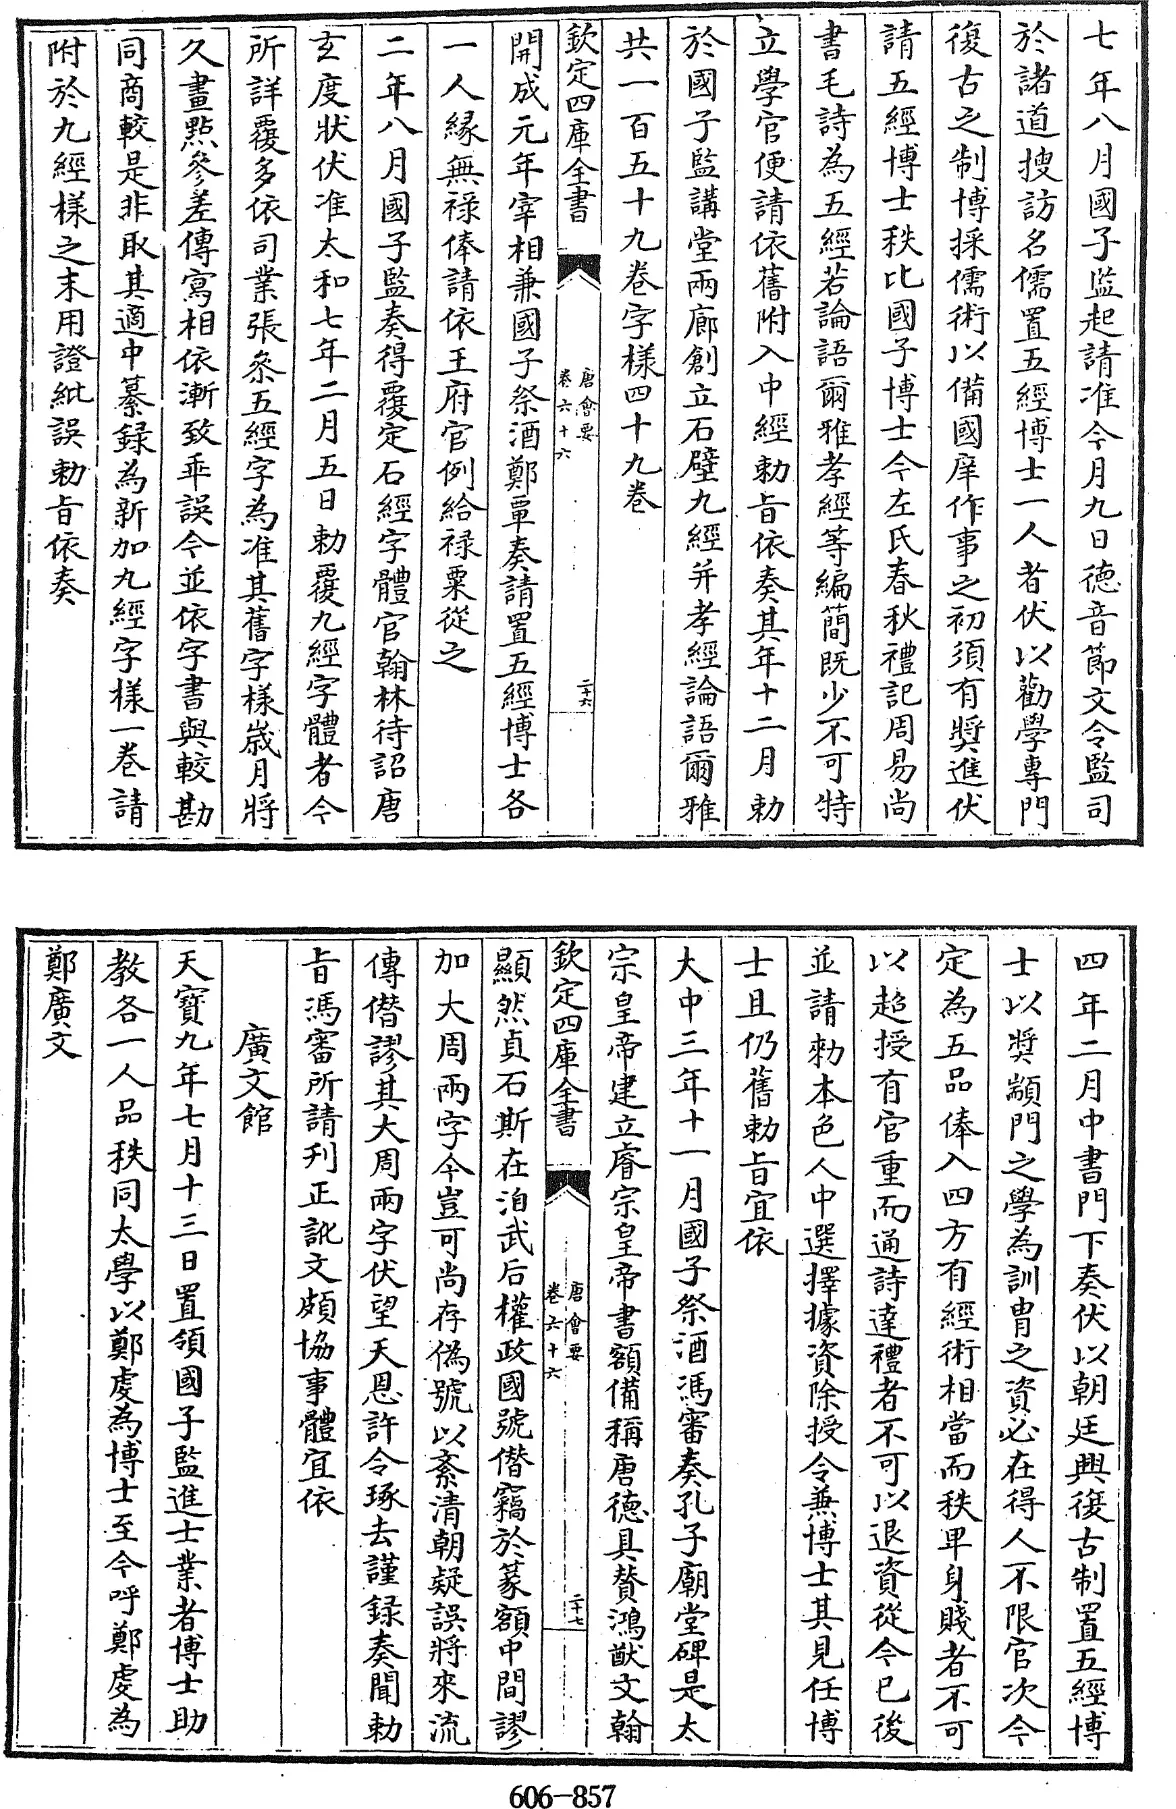 七年八月國子監起請准今月九日德音節文令監司
於諸道搜訪名儒置五經博士一人者伏以勸學專門
復古之制博採儒術以備國庠作事之初須有獎進伏
請五經博士秩比國子博士今左氏春秋禮記周易尚
書毛詩為五經若論語爾雅孝經等編簡既少不可特
立學官便請依舊附入中經勅旨依奏其年十二月勅
於國子監講堂兩廊創立石壁九經并孝經論語爾雅
共一百五十九卷字様四十九卷
欽定四庫全書
唐會要
卷六十六
二十六
開成元年宰相兼國子祭酒鄭覃奏請置五經博士各
一人緣無禄俸請依王府官例給禄粟從之
二年八月國子監奏得覆定石經字體官翰林待詔唐
玄度狀伏准太和七年二月五日勅覆九經字體者今
所詳覆多依司業張參五經字為准其舊字様歲月將
久畫點參差傳寫相依漸致乖誤今並依字書與較勘
同商較是非取其適中纂録為新加九經字様一卷請
附於九經様之末用證紕誤勅旨依奏
四年二月中書門下奏伏以朝廷興復古制置五經博
士以獎顓門之學為訓胄之資必在得人不限官次今
定為五品俸入四方有經術相當而秩卑身賤者不可
以超授有官重而通詩達禮者不可以退資從今已後
並請勑本色人中選擇據資除授令兼博士其見任博
士且仍舊勅旨宜依
大中三年十一月國子祭酒馮審奏孔子廟堂碑是太
宗皇帝建立睿宗皇帝書額備稱唐德具贊鴻猷文翰
欽定四庫全書
唐會要
卷六十六
二十七
顯然貞石斯在洎武后權政國號僭竊於篆額中間謬
加大周兩字今豈可尚存偽號以紊清朝疑誤將來流
傳僭謬其大周兩字伏望天恩許令琢去謹録奏聞勅
旨馮審所請刋正訛文頗協事體宜依
廣文館
天寶九年七月十三日置領國子監進士業者博士助
教各一人品秩同太學以鄭虔為博士至今呼鄭虔為
鄭廣文
606-857